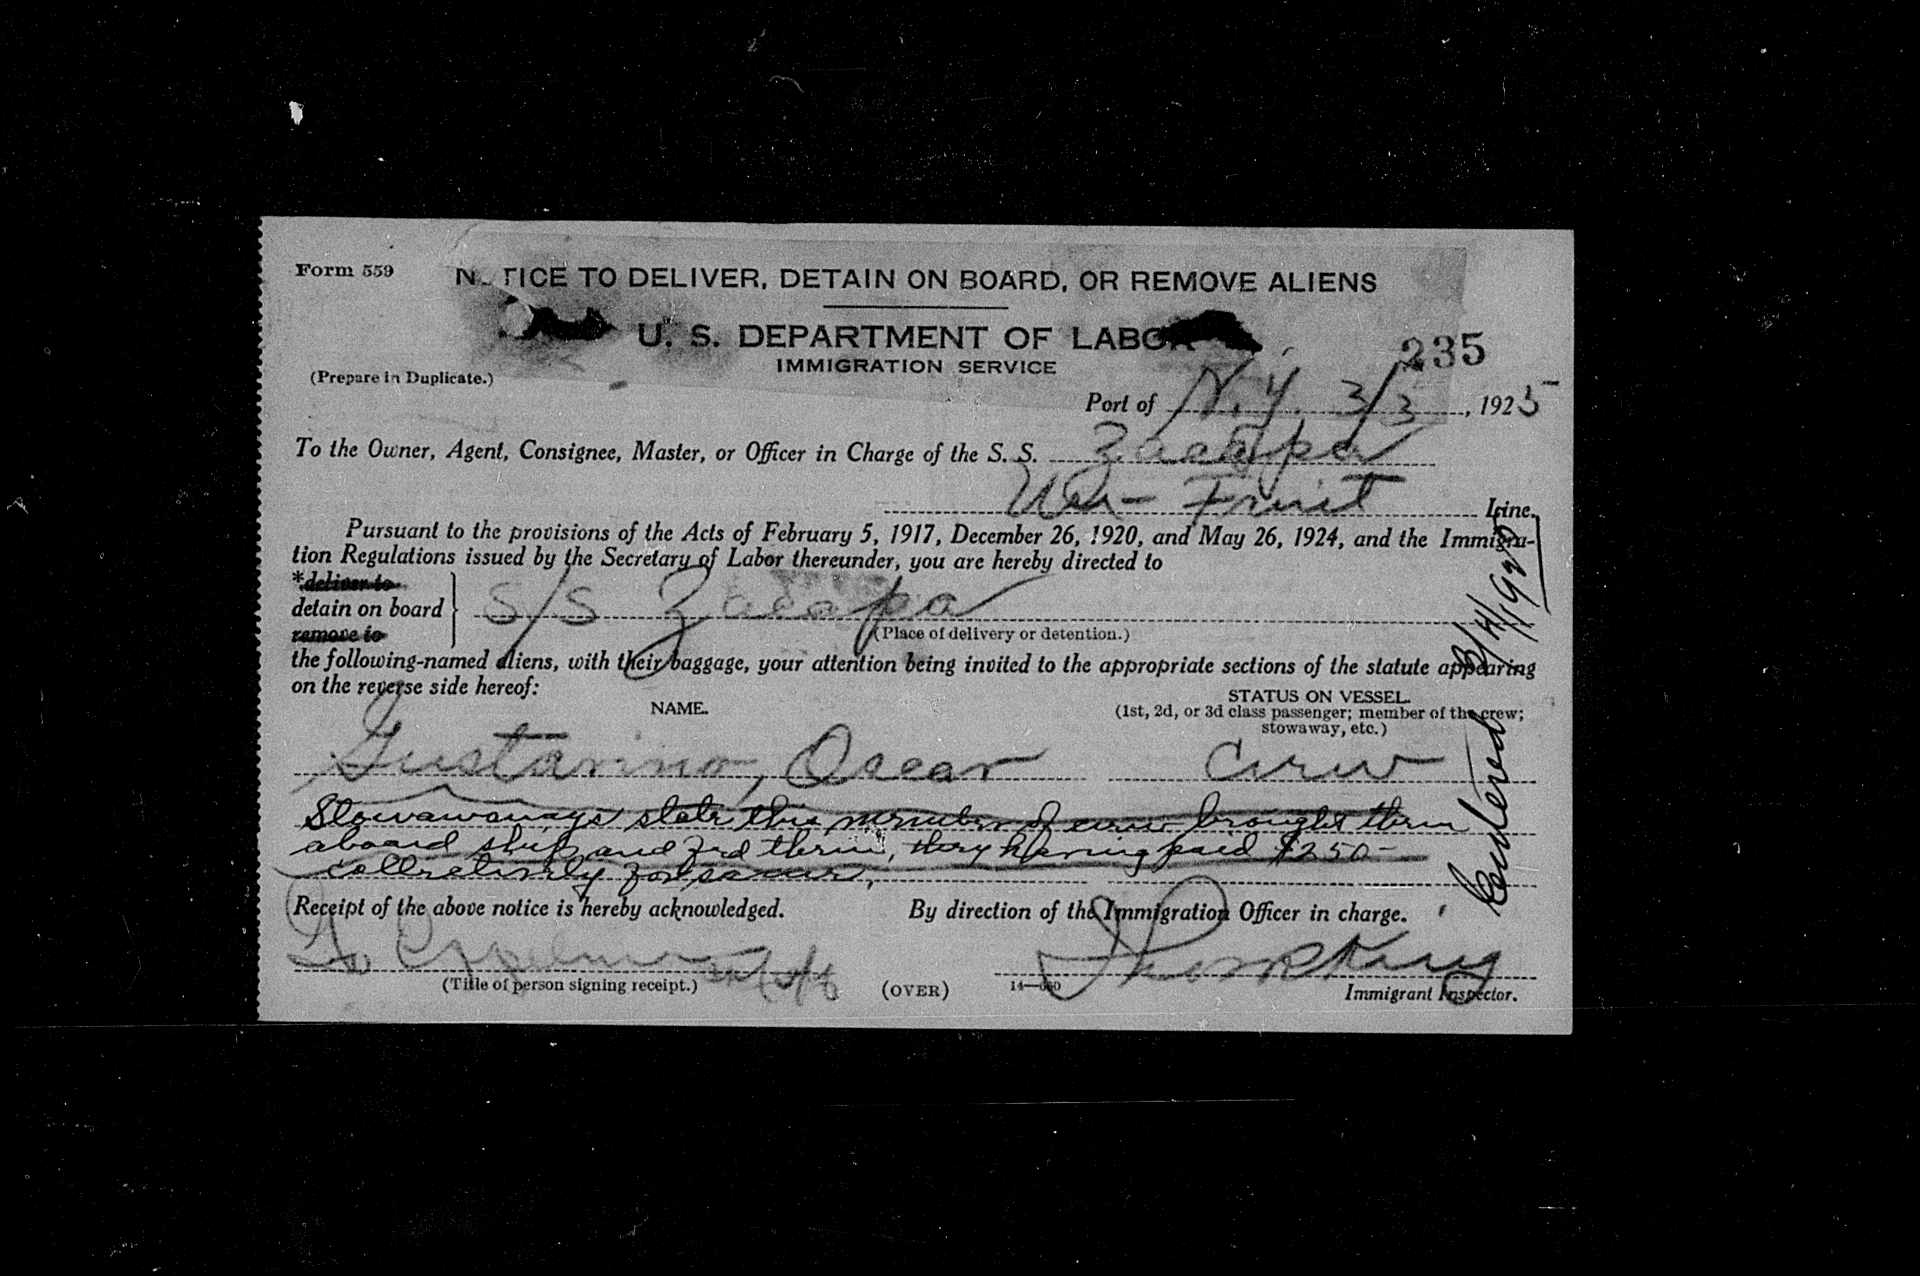 Form 559
NOTICE TO DELIVER, DETAIN ON BOARD, OR REMOVE ALIENS
U. S. DEPARTMENT OF LABOR
235
IMMIGRATION SERVICE
(Prepare in Duplicate.)
Port of N.Y. 3/3, 1925
To the Owner, Agent, Consignee, Master, or Officer in Charge of the S. S. Zacapa
Fruit Line.
Pursuant to the provisions of the Acts of February 5, 1917, December 26, 1920, and May 26, 1924, and the Immigra-
tion Regulations issued by the Secretary of Labor thereunder, you are hereby directed to
*deliver to
detain on board } S/S Zacapa
remove to
(Place of delivery or detention.)
the following-named aliens, with their baggage, your attention being invited to the appropriate sections of the statute appearing
on the reverse side hereof:
NAME.
STATUS ON VESSEL.
(1st, 2d, or 3d class passenger; member of the crew;
stowaway, etc.)
Gustarino, Oscar crew
Stowaways state this member of crew brought them
aboard ship and fed them, they having paid $250-
collectively for same.
Receipt of the above notice is hereby acknowledged.
By direction of the Immigration Officer in charge.
(Title of person signing receipt.)
(OVER)
Immigrant Inspector.
3/4/1925